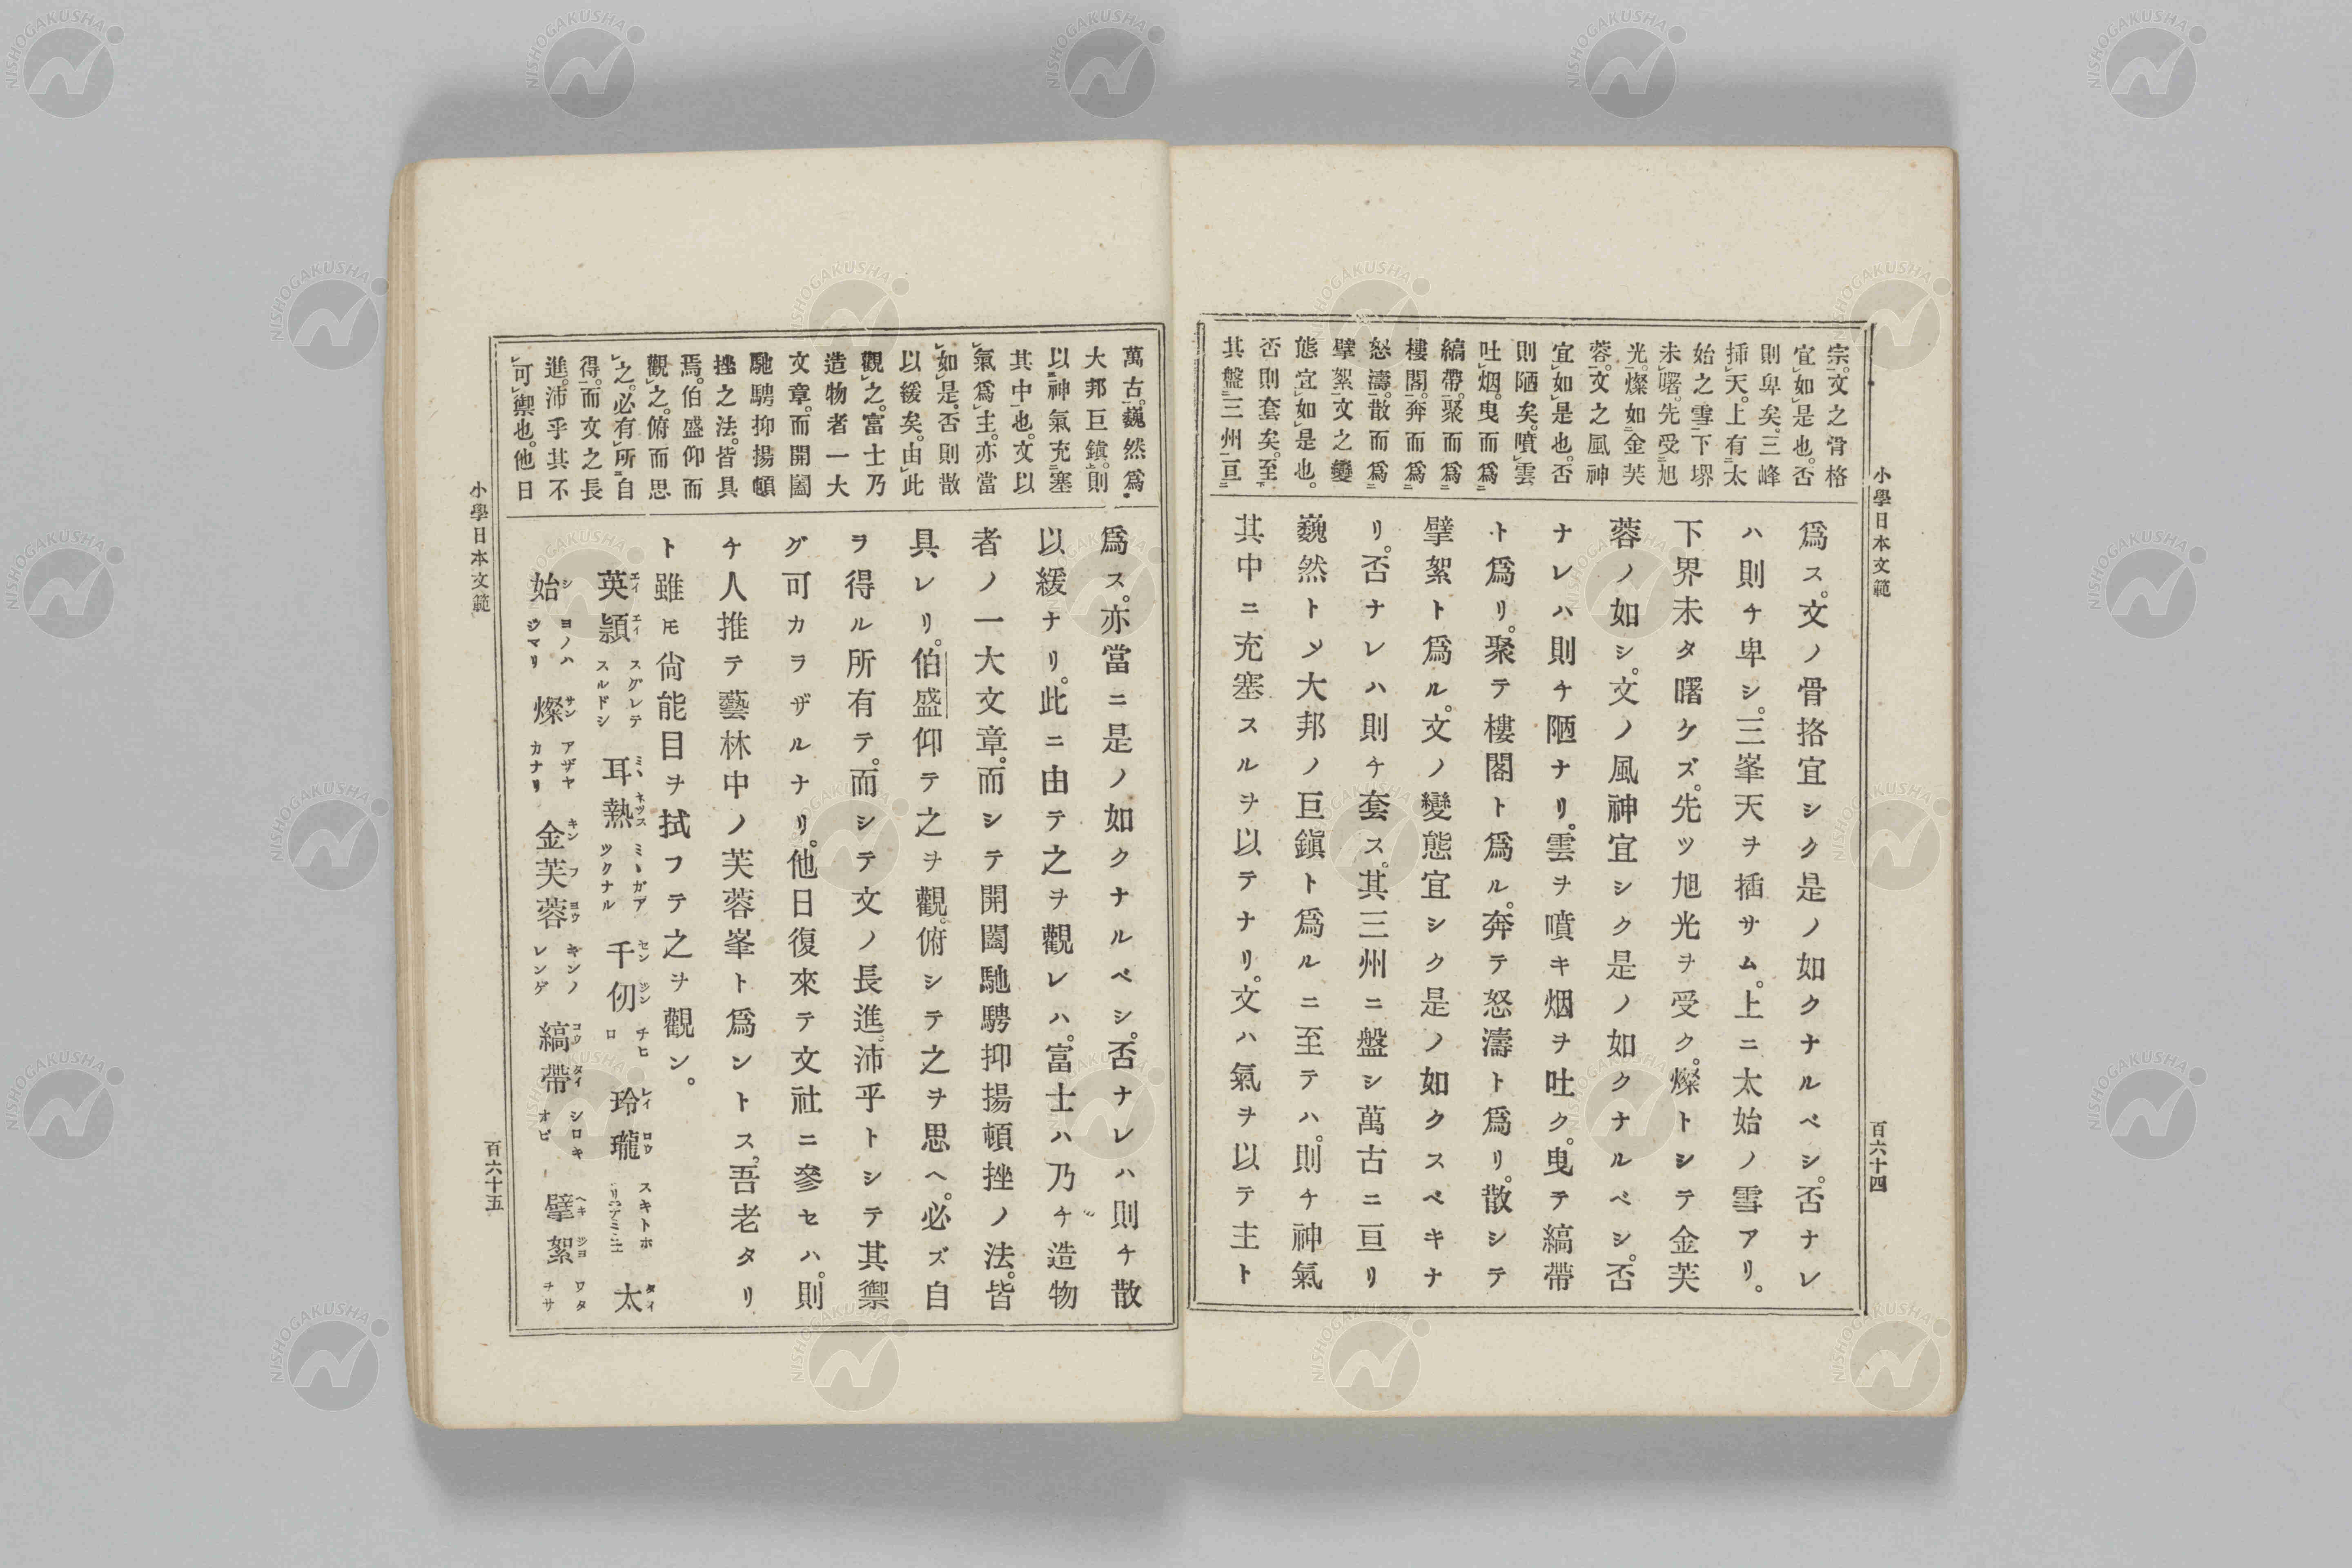 小學日本文範
百六十四
宗。文之骨格
宜如是也。否
則卑矣。三峰
揷天。上有太
始之雪。下堺
未曙。先受旭
光。燦如金芙
蓉。文之風神
宜如是也。否
則陋矣。噴雲
吐烟。曳而爲
縞帶。聚而爲
樓閣。奔而爲
怒濤。散而爲
擘絮。文之變
態宜如是也。
否則套矣。至
其盤三州亘
爲ス。文ノ骨挌宜シク是ノ如クナルベシ。否ナレ
ハ則チ卑シ。三峯天ヲ插サム。上ニ太始ノ雪アリ。
下界未タ曙ケズ。先ツ旭光ヲ受ク。燦トシテ金芙
蓉ノ如シ。文ノ風神宜シク是ノ如クナルベシ。否
ナレハ則チ陋ナリ。雲ヲ噴キ烟ヲ吐ク。曳テ縞帶
ト爲リ。聚テ樓閣ト爲ル。奔テ怒濤ト爲リ。散シテ
擘絮ト爲ル。文ノ變態宜シク是ノ如クスベキナ
リ。否ナレハ則チ套ス。其三州ニ盤シ萬古ニ亘リ
巍然トメ大邦ノ巨鎭ト爲ルニ至テハ。則チ神氣
其中ニ充塞スルヲ以テナリ。文ハ氣ヲ以テ主ト
萬古。巍然爲
大邦巨鎭。則
以神氣充塞
其中也。文以
氣爲主。亦當
如是。否則散
以緩矣。由此
觀之。富士乃
造物者一大
文章。而開闔
馳騁抑揚頓
挫之法。皆具
焉。伯盛仰而
觀之。俯而思
之。必有所自
得。而文之長
進。沛乎其不
可禦也。他日
爲ス。亦當ニ是ノ如クナルベシ。否ナレハ則チ散
以緩ナリ。此ニ由テ之ヲ觀レハ。富士ハ乃チ造物
者ノ一大文章。而シテ開闔馳騁抑揚頓挫ノ法。皆
具レリ。伯盛仰テ之ヲ觀。俯シテ之ヲ思ヘ。必ズ自
ヲ得ル所有テ。而シテ文ノ長進。沛乎トシテ其禦
グ可カラザルナリ。他日復來テ文社ニ參セハ。則
チ人推テ藝林中ノ芙蓉峯ト爲ントス。吾老タリ
ト雖モ尙能目ヲ拭フテ之ヲ觀ン。
英エイ頴エイ スグレテスルドシ 耳ミヽ熱ネツス ミヽガアツクナル 千セン仞ジン チヒロ 玲レイ瓏ロウ スキトホリ 太タイ
始シ ヨノハジマリ 燦サン アザヤカナリ 金キン芙フ蓉ヨウ キンノレンゲ 縞コウ帶タイ シロキオビ 擘ヘキ絮ジヨ ワタヲサ
小學日本文範
百六十五